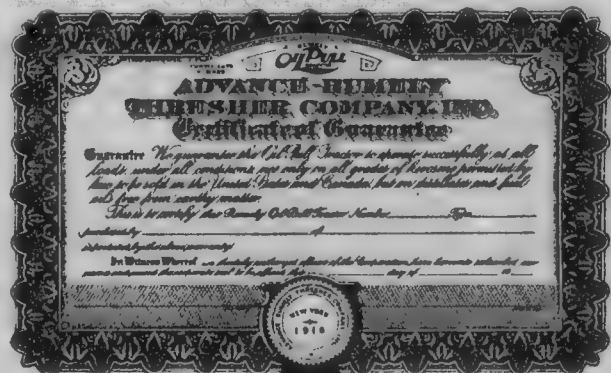 OilPull
ADVANCE-RUMELY
THRESHER COMPANY, INC.
Certificate of Guarantee
Guarantee We guarantee the Oil Pull Tractor to operate successfully at all
loads, under all conditions, not only on all grades of kerosene permitted by
law to be sold in the United States and Canada, but on distillates and fuel
oils free from earthy matter.
This is to certify that Rumely Oil Pull Tractor Number Type
purchased by of
is protected by the above guarantee
In Witness Whereof
day of
NEW YORK
1915